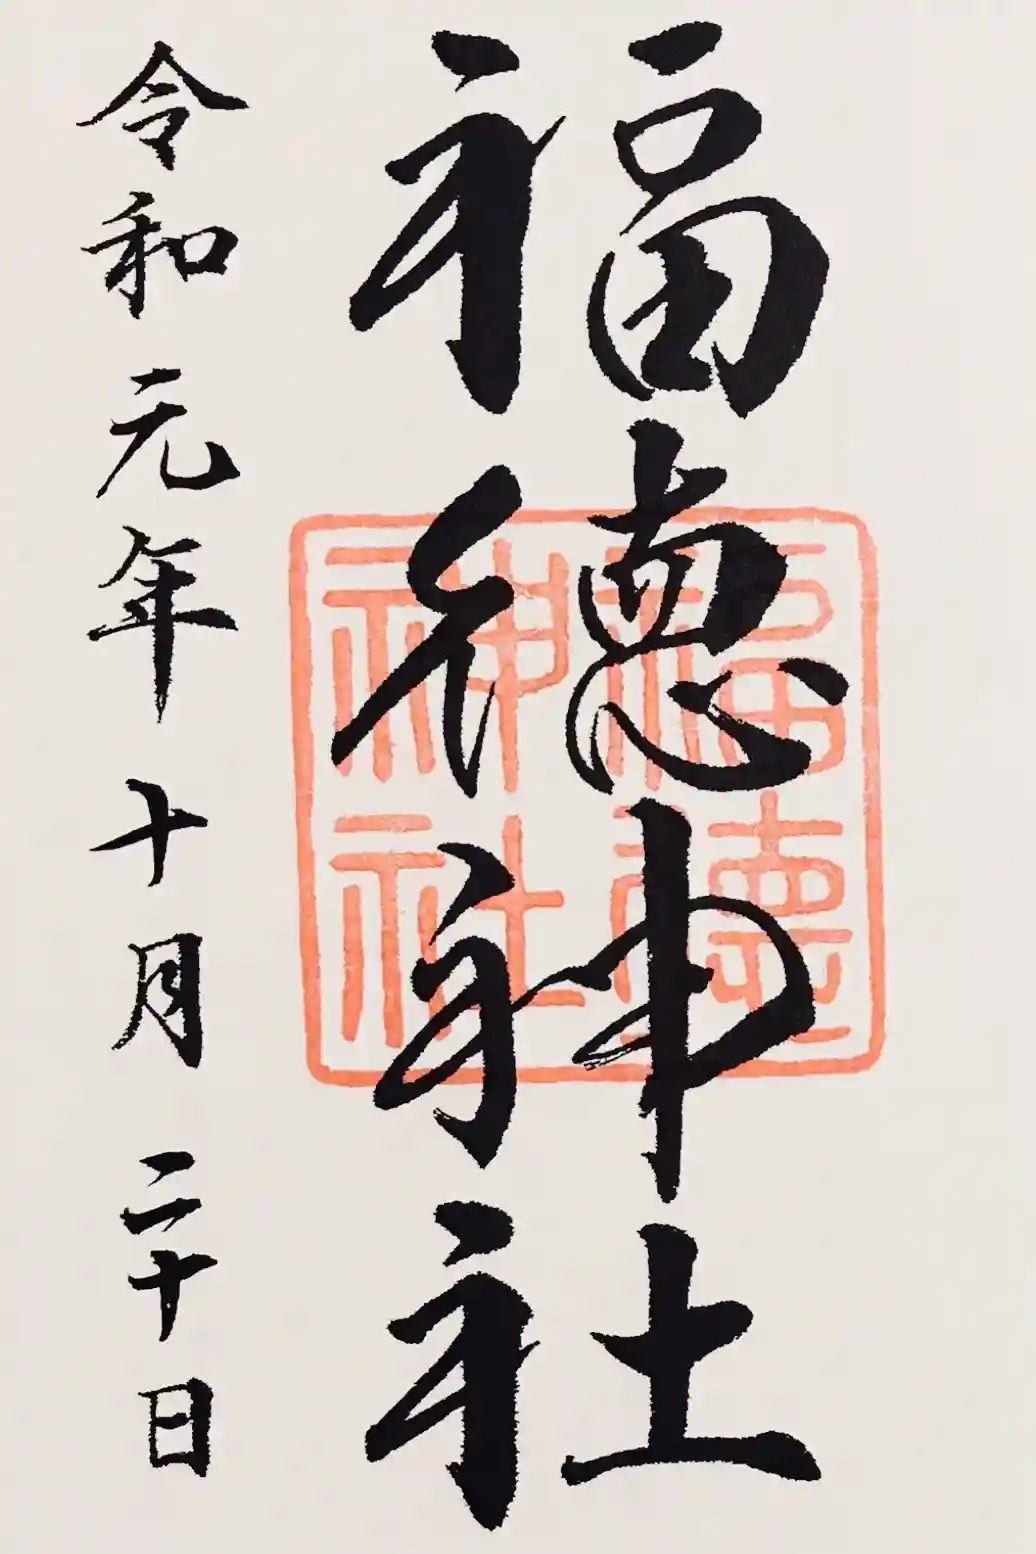 福德神社
令和元年十月二十日
福德神社